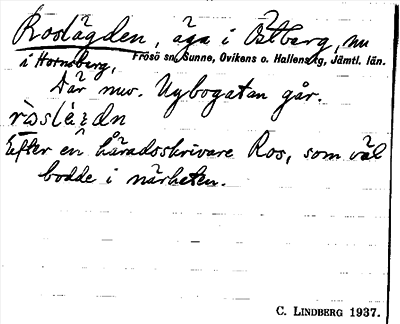 Roslägden, äga i Östberg, nu
i Hornsberg, Frösö sn, Sunne, Ovikens o. Hallens tg, Jämtl. län.
Där nuv. Nybogatan går.
Efter en häradsskrivare Ros, som väl
bodde i närheten.
C. LINDBERG 1937.